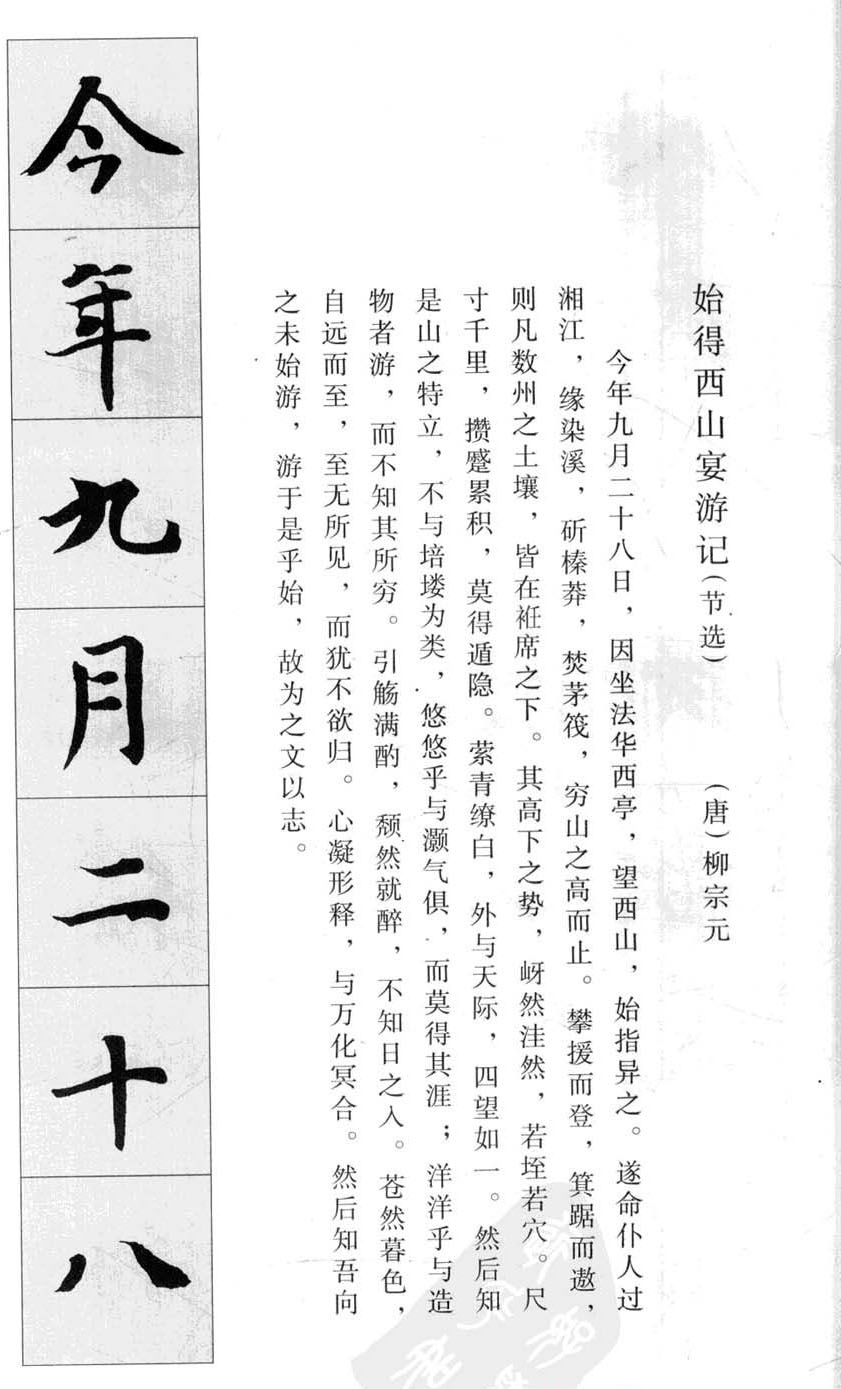 始得西山宴游记(节选) (唐)柳宗元
今年九月二十八日，因坐法华西亭，望西山，始指异之。遂命仆人过
湘江，缘染溪，斫榛莽，焚茅筏，穷山之高而止。攀援而登，箕踞而遨，
则凡数州之土壤，皆在衽席之下。其高下之势，岈然洼然，若垤若穴。尺
寸千里，攒蹙累积，莫得遁隐。萦青缭白，外与天际，四望如一。然后知
是山之特立，不与培塿为类，悠悠乎与灏气俱，而莫得其涯；洋洋乎与造
物者游，而不知其所穷。引觞满酌，颓然就醉，不知日之入。苍然暮色，
自远而至，至无所见，而犹不欲归。心凝形释，与万化冥合。然后知吾向
之未始游，游于是乎始，故为之文以志。
今年九月二十八